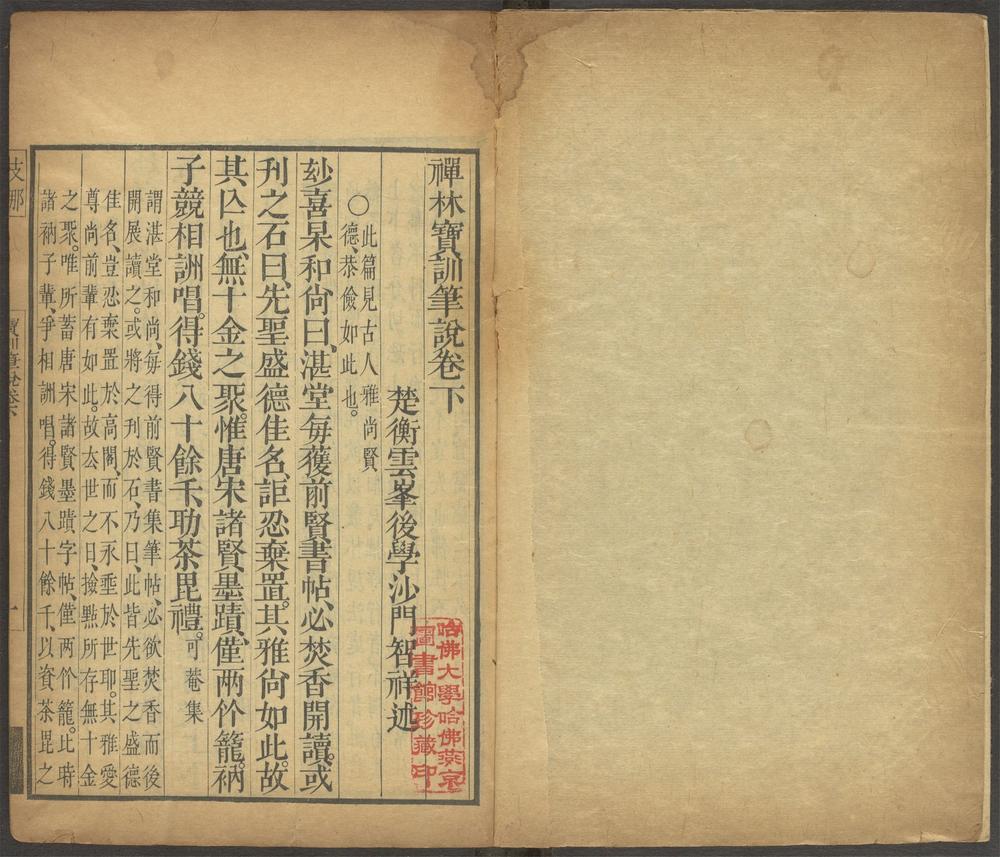 禪林寶訓筆說卷下
楚衡雲峯後學沙門智祥述
○此篇見古人雅尚賢
德、恭儉如此也。
玅喜杲和尙曰、湛堂每獲前賢書帖、必焚香開讀。或
刋之石、曰、先聖盛德佳名、詎忍棄置。其雅尙如此。故
其亾也、無十金之聚。惟唐宋諸賢墨蹟、僅兩竹籠。衲
子競相詶唱。得錢八十餘千、助茶毘禮。可菴集
謂湛堂和尚、每得前賢書集筆帖、必欲焚香而後
開展讀之。或將之刋於石、乃曰、此皆先聖之盛德
佳名、豈忍棄置於高閣、而不永垂於世耶。其雅愛
尊尚前輩有如此。故去世之日、撿點所存無十金
之聚。唯所蓄唐宋諸賢墨蹟、字帖、僅兩竹籠。比時
諸衲子輩、爭相詶唱。得錢八十餘千、以資茶毘之
支那
寶訓筆說卷下
一
哈佛大學哈佛燕京
圖書館珍藏印